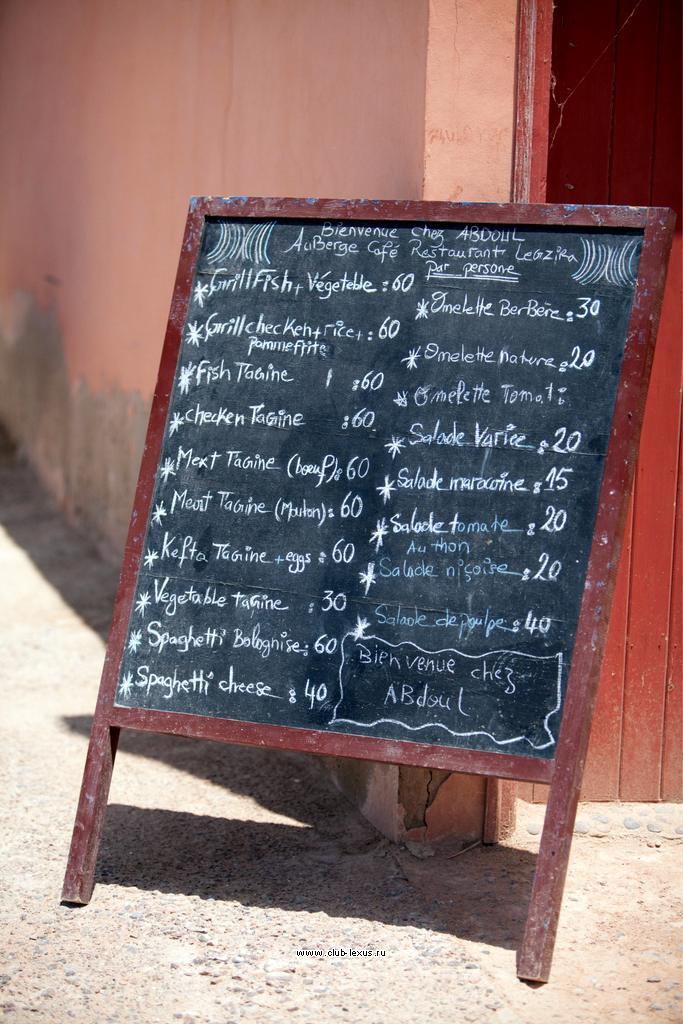 Bienvenue chez ABDOUL
AuBerge Café Restaurant Legzira
Par persone
* Grill Fish + Végeteble : 60
* Grill checken + rice + : 60
pommeffite
* Fish Tagine : 60
* checken Tagine : 60
* Meat Tagine (boeuf) : 60
* Meat Tagine (Mouton) : 60
* Kefta Tagine + eggs : 60
* Vegetable tagine : 30
* Spaghetti Bolognise : 60
* Spaghetti cheese : 40
* Omelette BerBère : 30
* Omelette nature : 20
* Omelette Tomati
* Salade Variée : 20
* Salade marocaine : 15
* Salade tomate 20
Au thon
* Salade niçoise : 20
* Salade de poulpe : 40
Bienvenue chez
ABdoul
www.club-lexus.ru